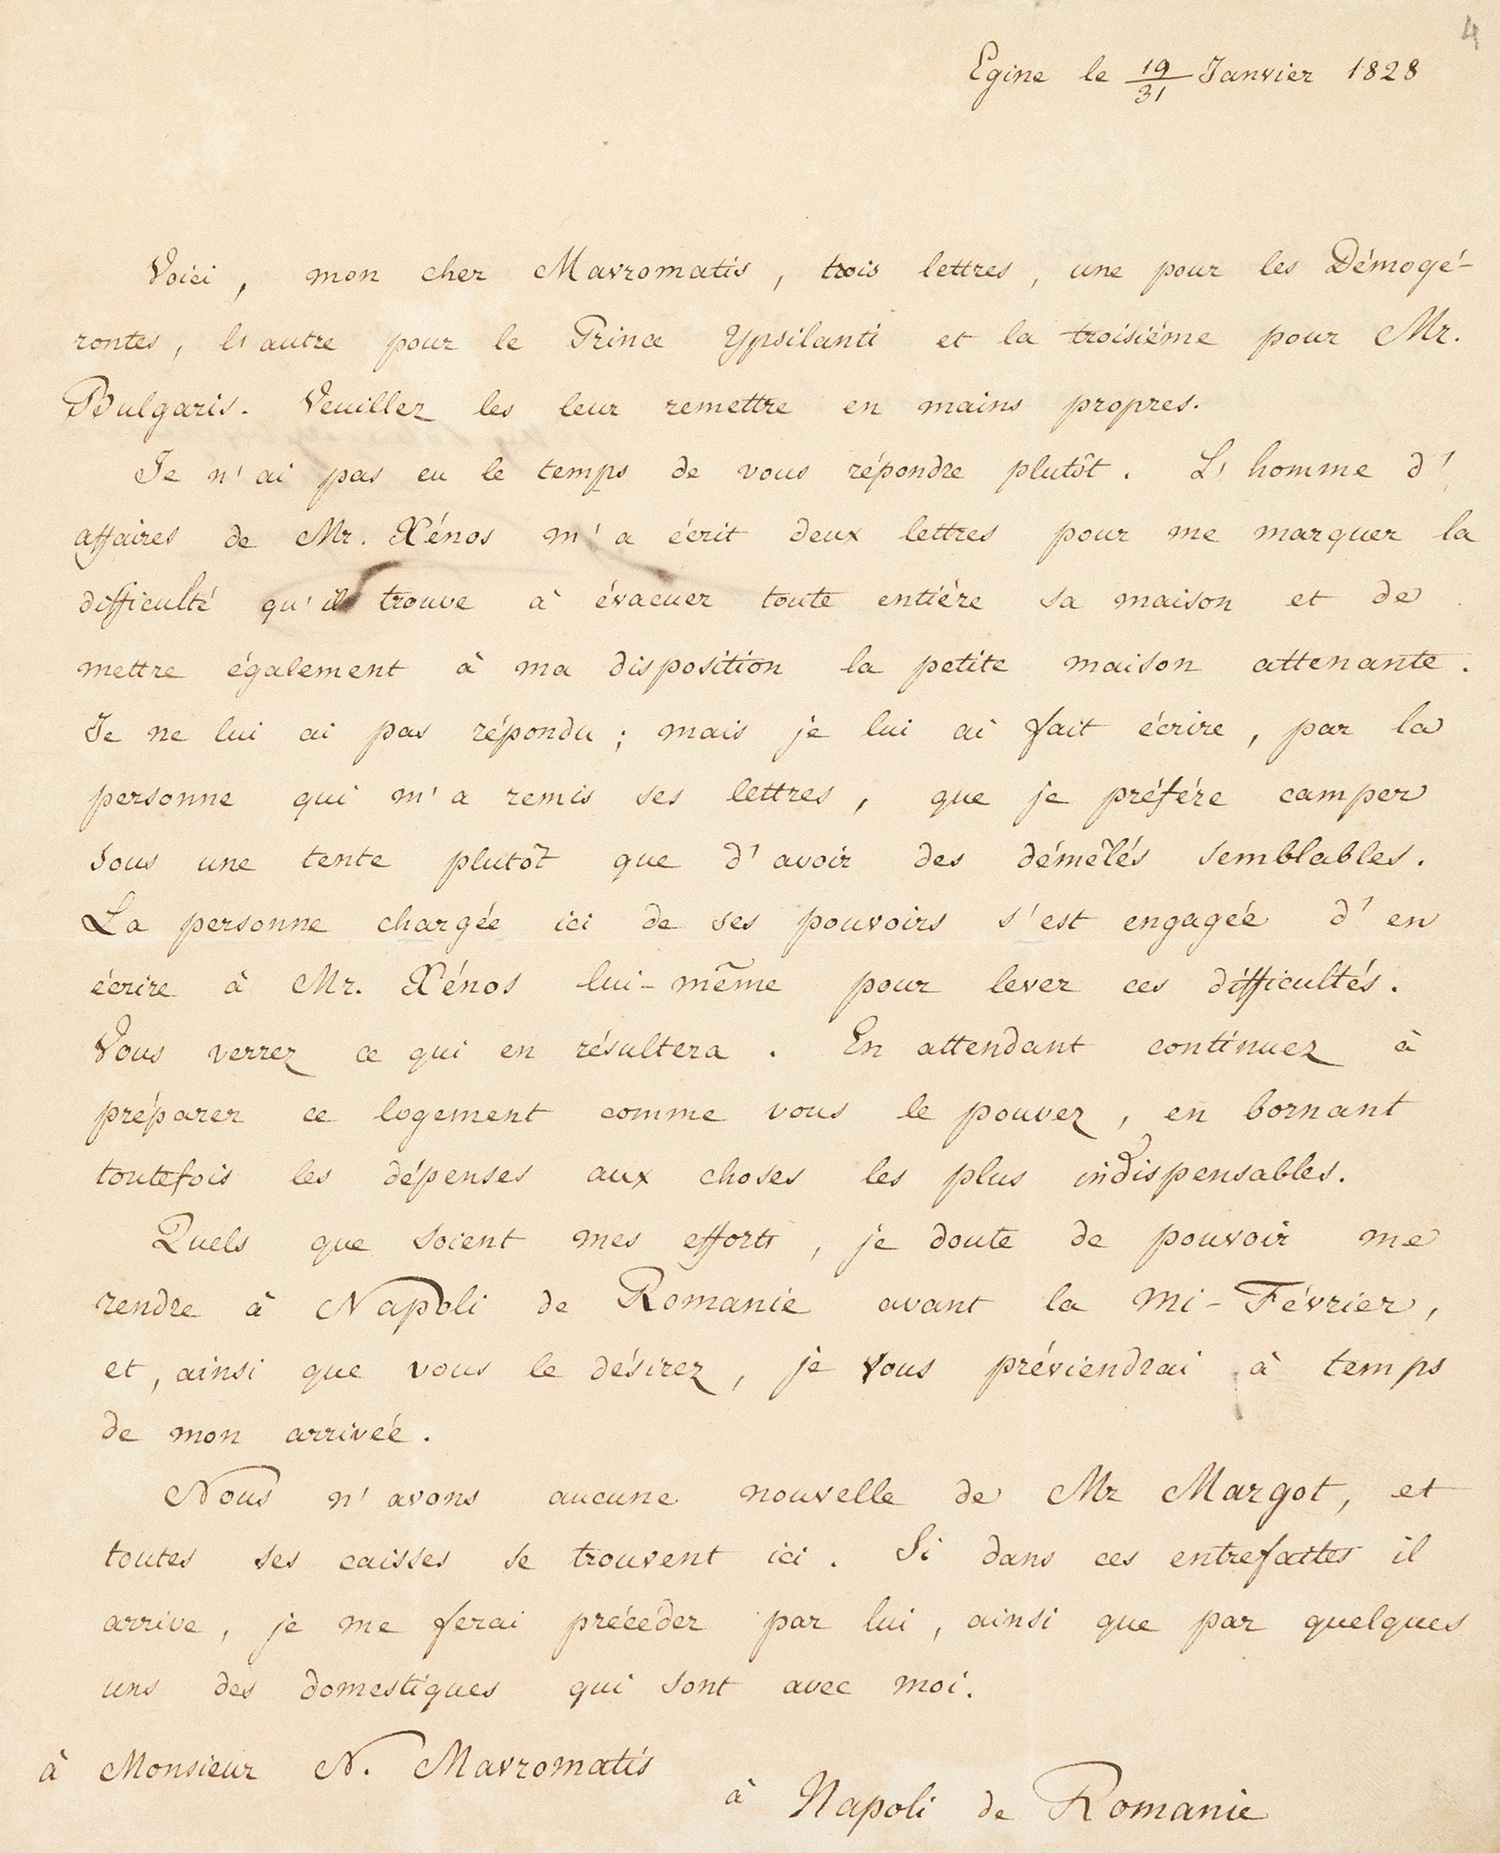 4
Egine le 19/31 Janvier 1828
Voici, mon cher Mavromatis, trois lettres, une pour les Démogé-
rontes, l'autre pour le Prince Ypsilanti et la troisiéme pour Mr.
Bulgaris. Veuillez les leur remettre en mains propres.
Je n'ai pas eu le temps de vous répondre plutôt. L'homme d'
affaires de Mr. Xénos m'a écrit deux lettres pour me marquer la
difficulté qu'il trouve à évacuer toute entiére sa maison et de
mettre également à ma disposition la petite maison attenante.
Je ne lui ai pas répondu; mais je lui ai fait écrire, par la
personne qui m'a remis ses lettres, que je préfére camper
sous une tente plutôt que d'avoir des démêlés semblables.
La personne chargée ici de ses pouvoirs s'est engagée d'en
écrire à Mr. Xénos lui-même pour lever ces difficultés.
Vous verrez ce qui en résultera. En attendant continuez à
préparer ce logement comme vous le pouvez, en bornant
toutefois les dépenses aux choses les plus indispensables.
Quels que soient mes efforts, je doute de pouvoir me
rendre à Napoli de Romanie avant la mi-Février,
et, ainsi que vous le désirez, je vous préviendrai à temps
de mon arrivée.
Nous n'avons aucune nouvelle de Mr Margot, et
toutes ses caisses se trouvent ici. Si dans ces entrefaites il
arrive, je me ferai précéder par lui, ainsi que par quelques
uns des domestiques qui sont avec moi.
à Monsieur N. Mavromatis
à Napoli de Romanie